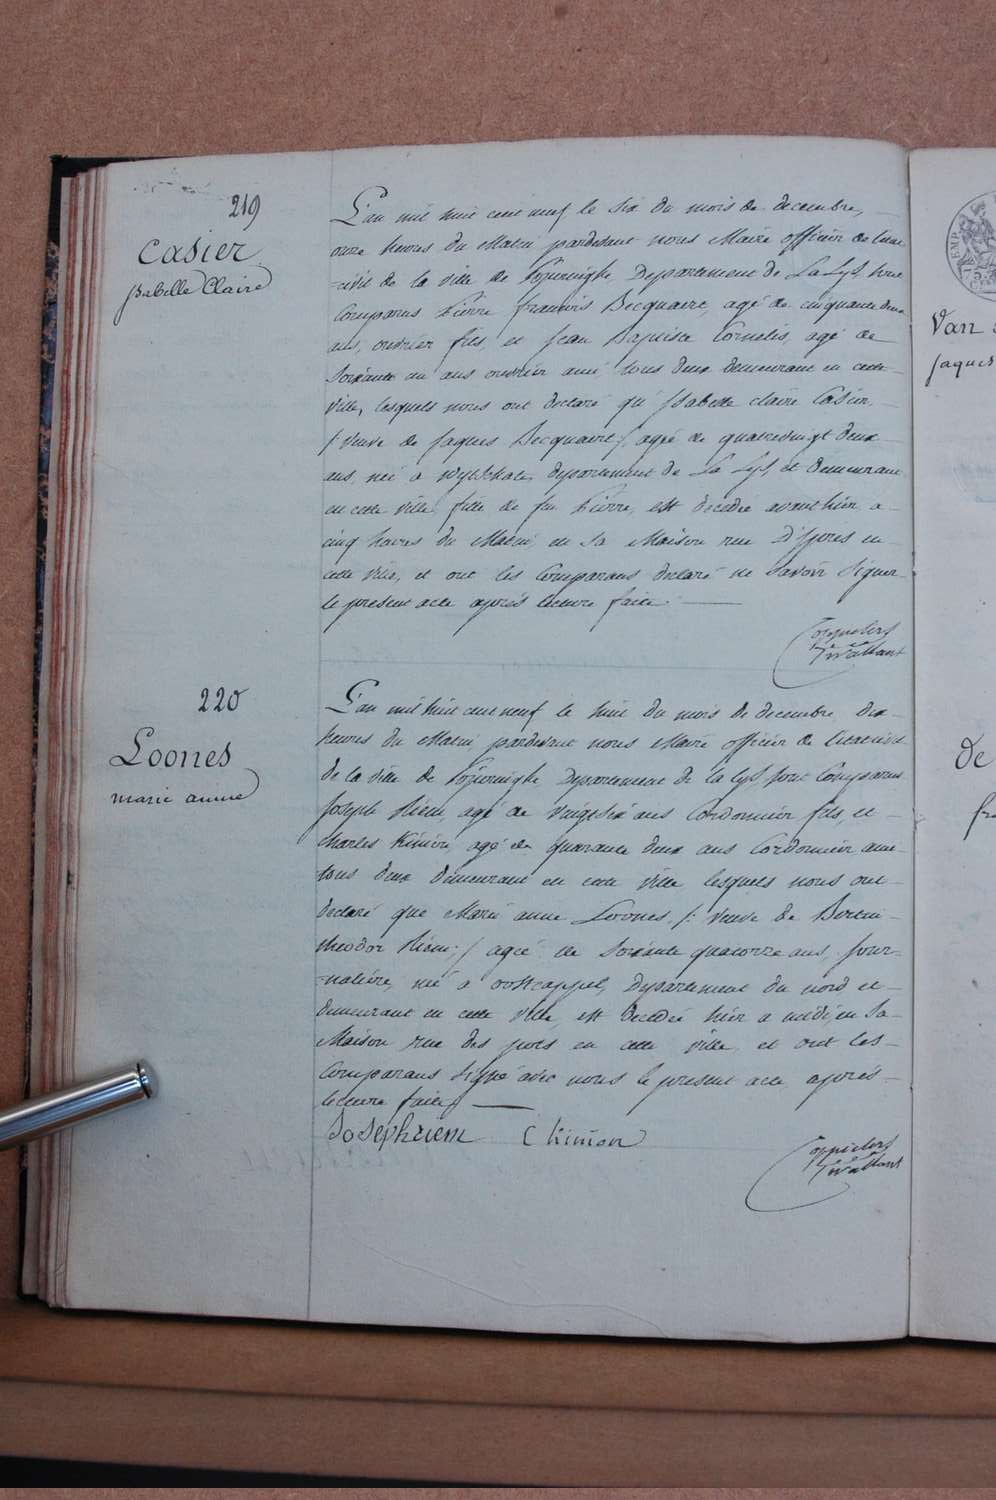 219
Casier
isabelle Claire
L'an mil huit cent neuf le six du mois de decembre,
onze heures du Matin pardevant nous Maire officier de l'etat
=civil de la ville de Departement de La Lys, sont
Comparus Pierre francois Becquaert, agé de cinquante deux
ans, ouvrier fils, et Jean Baptiste Cornelis, agé de
Soixante un ans ouvrier ami, tous deux demeurant en cette
ville, lesquels nous ont declaré qu'Isabelle claire Casier,
/: veuve de Jaques Becquaert :/ agée de quatrevingt deux
ans, née a Wytschate, departement de La Lys, et demeurant
en cette ville, fille de feu Pierre, est decedée avanthier, a
cinq heures du Matin, en sa Maison rue D'Ipres en
cette ville, et ont les Comparans declaré ne Savoir Signer
le present acte aprés lecture faite.
220
Loones
marie anne
L'an mil huit cent neuf le huit du mois de decembre dix
heures du Matin pardevant nous Maire officier de l'etat civil
de la ville de Departement de la Lys, sont Comparus
Joseph Riem, agé de vingt six ans Cordonnier fils, et
Charles agé de quarante deux ans Cordonnier ami
tous deux demeurant en cette ville lesquels nous ont
declaré que Marie anne Loones, /: veuve de
theodor Riem :/ agée de Soixante quatorze ans, jour=
=naliére, née a oostcappel, Departement du nord et
demeurant en cette ville, est decedée hier a midi, en sa
Maison rue des pots en cette ville, et ont les
Comparans Signé avec nous le present acte aprés
lecture faite.
Josephriem
Van
Jaques
de
fr